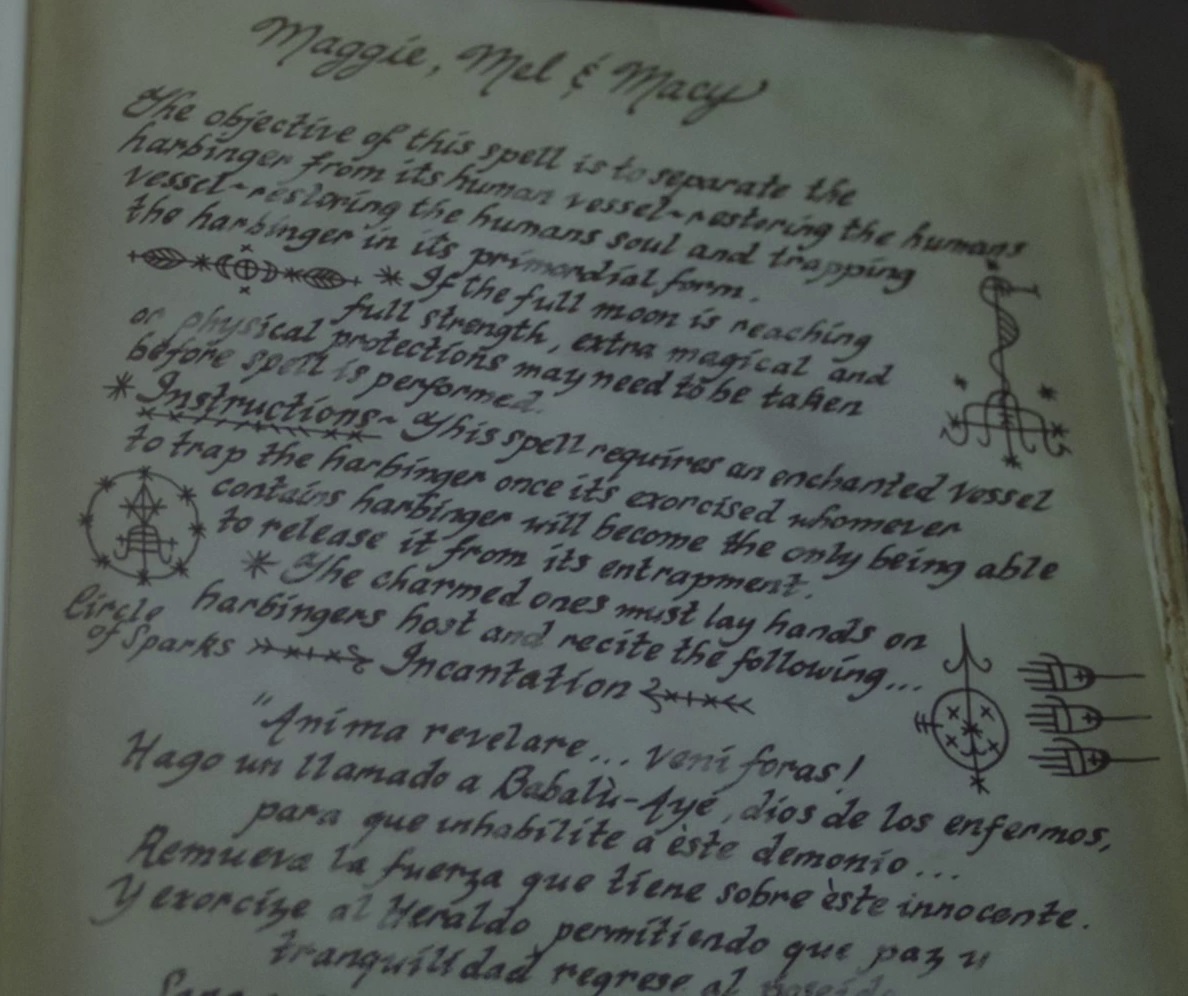 Maggie, Mel & Macy
The objective of this spell is to separate the
harbinger from its human vessel~restoring the humans
vessel~restoring the humans soul and trapping
the harbinger in its primordial form.
* If the full moon is reaching
full strength, extra magical and
or physical protections may need to be taken
before spell is performed.
* Instructions~ This spell requires an enchanted vessel
to trap the harbinger once its exorcised whomever
contains harbinger will become the only being able
to release it from its entrapment.
* The charmed ones must lay hands on
harbingers host and recite the following...
Circle
of Sparks
Incantation
"Anima revelare... veni foras!
Hago un llamado a Babalù-Ayé, dios de los enfermos,
para que inhabilite a èste demonio...
Remueva la fuerza que tiene sobre èste innocente.
Y exorcize al Heraldo permitiendo que paz y
tranquilidad regrese al